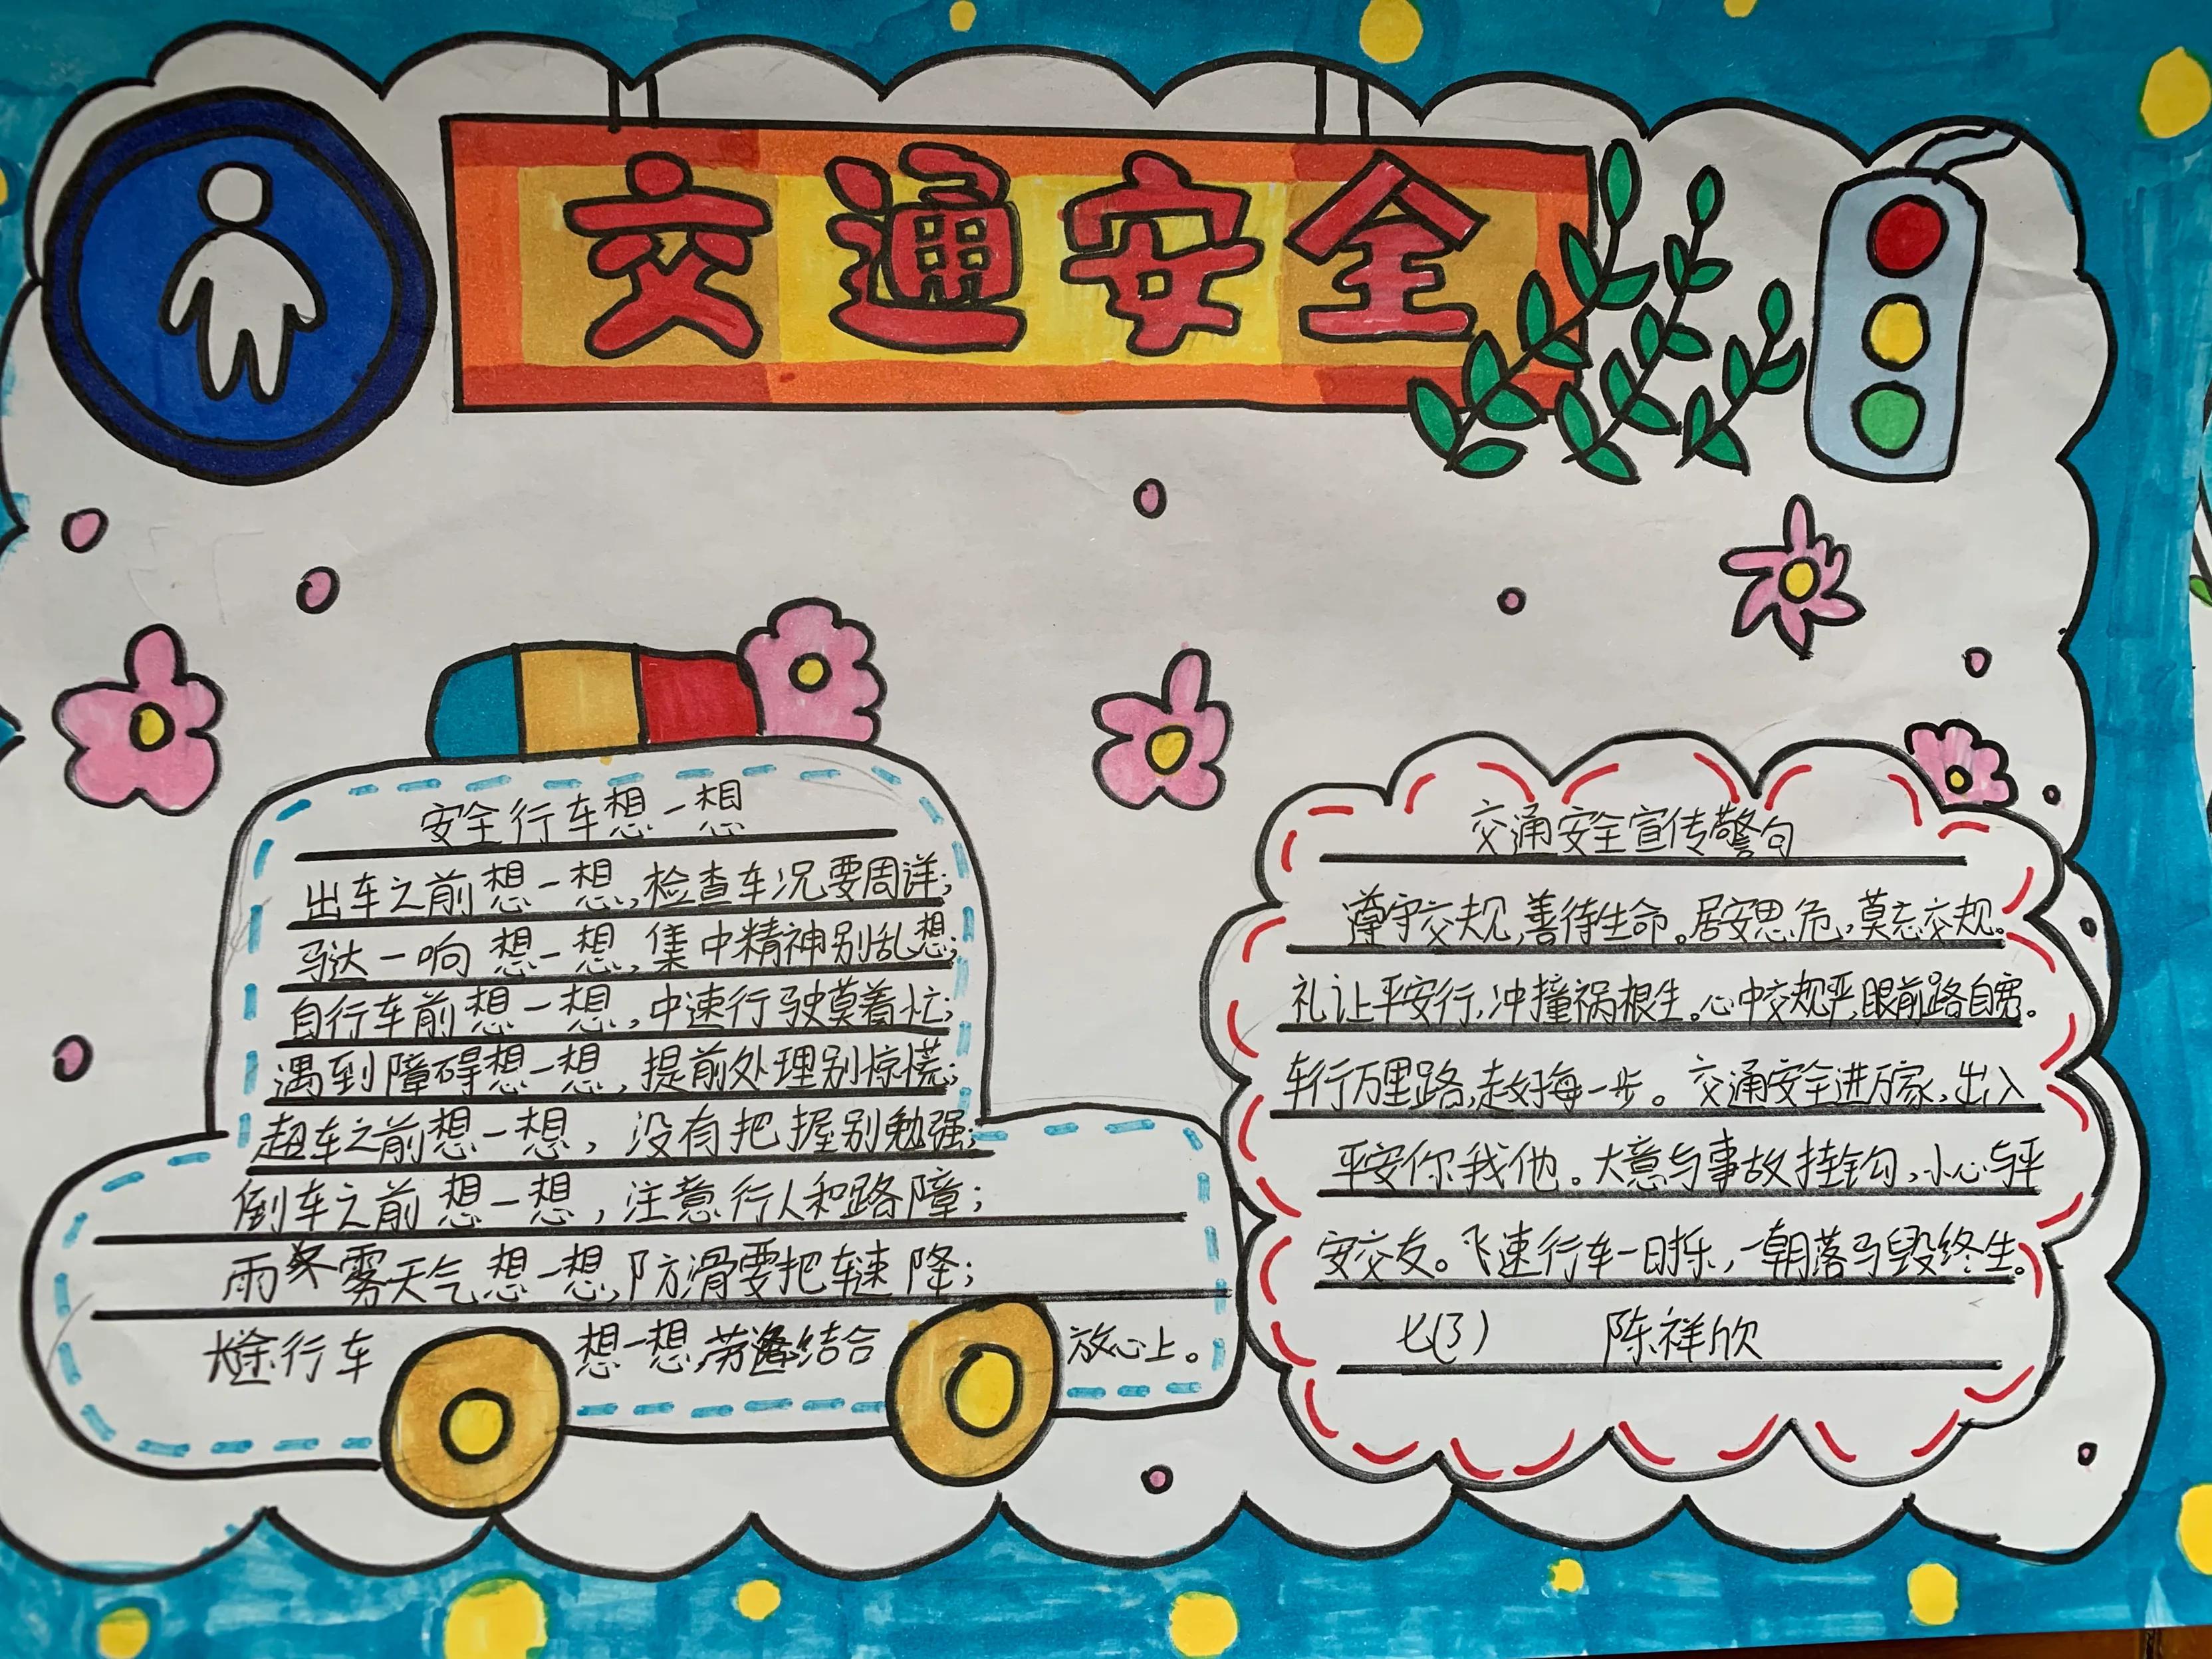 交通安全
安全行车想一想
出车之前想一想,检查车况要周详;
马达一响想一想,集中精神别乱想;
自行车前想一想,中速行驶莫着忙;
遇到障碍想一想,提前处理别惊慌;
超车之前想一想,没有把握别勉强;
倒车之前想一想,注意行人和路障;
雨雾天气想一想,防滑要把车速降;
长途行车想一想,劳逸结合放心上。
交通安全宣传警句
遵守交规,善待生命。居安思危,莫忘交规。
礼让平安行,冲撞祸根生。心中交规严,眼前路自宽。
车行万里路,走好每一步。交通安全进万家,出入
平安你我他。大意与事故挂钩,小心与平
安交友。飞速行车一时乐,一朝落马毁终生。
七(3) 陈祥欣